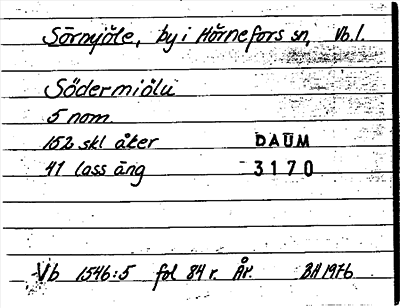 Sörmjöle, by i Hörnefors sn, Vb.l.
Södermiölu
5 nom.
152 skl åker
DAUM
41 lass äng
3170
Vb 1546:5 fol 84 r. År. BA 1976